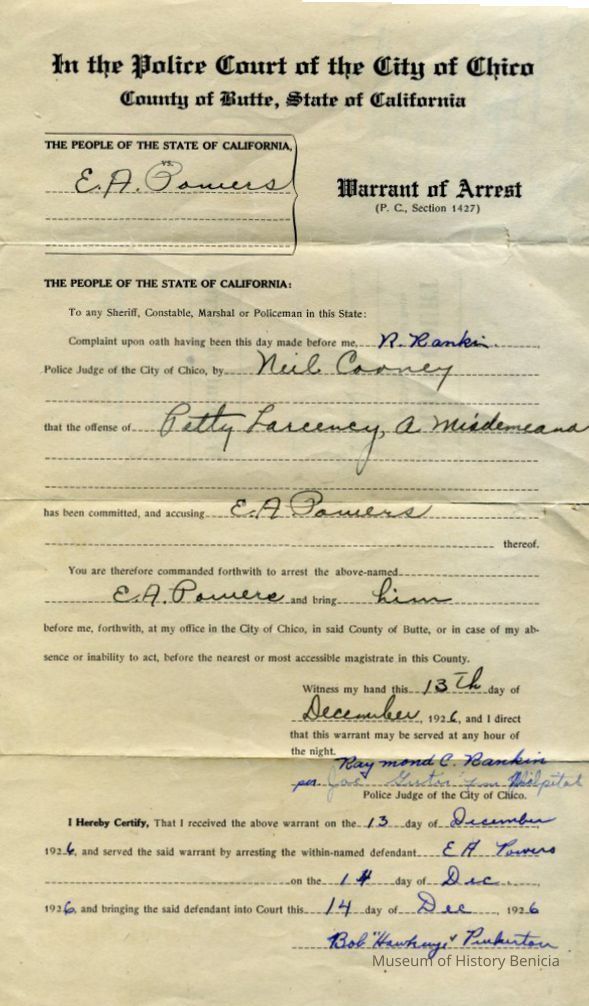 In the Police Court of the City of Chico
County of Butte, State of California
THE PEOPLE OF THE STATE OF CALIFORNIA,
vs.
E. A. Powers
Warrant of Arrest
(P. C., Section 1427)
THE PEOPLE OF THE STATE OF CALIFORNIA:
To any Sheriff, Constable, Marshal or Policeman in this State:
Complaint upon oath having been this day made before me, R. Rankin.
Police Judge of the City of Chico, by Neil Cooney
that the offense of Petty Larcency, A Misdemeanor
has been committed, and accusing E. A Powers
thereof.
You are therefore commanded forthwith to arrest the above-named
E. A. Powers and bring him
before me, forthwith, at my office in the City of Chico, in said County of Butte, or in case of my ab-
sence or inability to act, before the nearest or most accessible magistrate in this County.
Witness my hand this 13th day of
December, 1926, and I direct
that this warrant may be served at any hour of
the night.
Raymond C. Rankin
per Joe Hospital
Police Judge of the City of Chico.
I Hereby Certify, That I received the above warrant on the 13 day of December
1926, and served the said warrant by arresting the within-named defendant E A Powers
on the 14 day of Dec.
1926, and bringing the said defendant into Court this 14 day of Dec, 1926
Bob "Hawkeye" Pinkerton
Museum of History Benicia